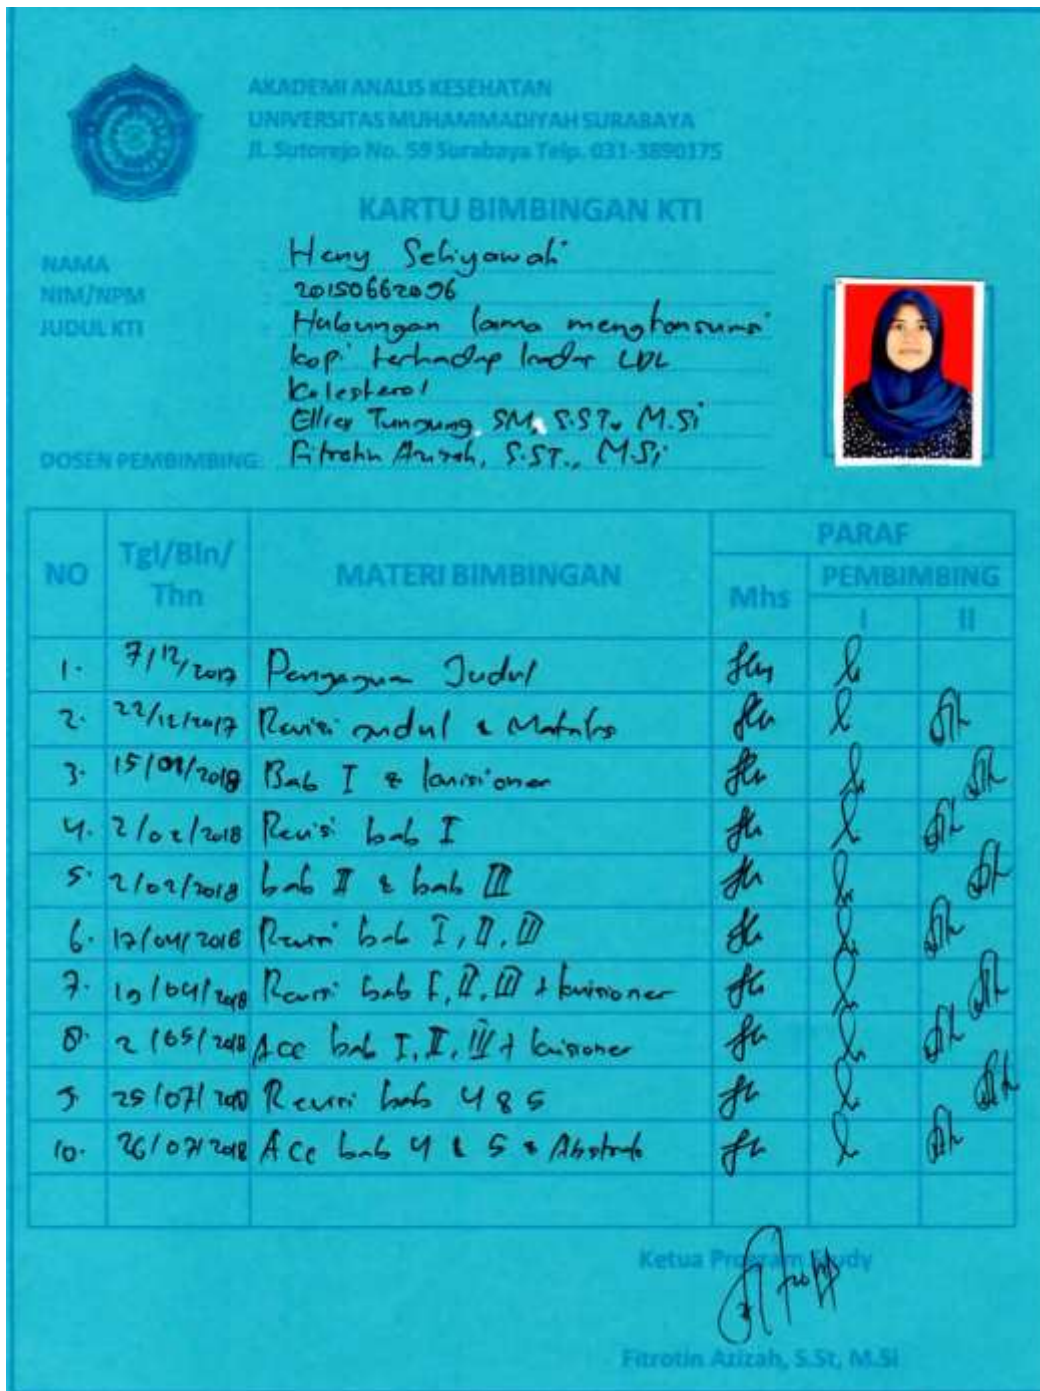 AKADEMI ANALIS KESEHATAN
UNIVERSITAS MUHAMMADIYAH SURABAYA
Jl. Sutorejo No. 59 Surabaya Telp. 031-3890175
KARTU BIMBINGAN KTI
NAMA : Heny Setiyawati
NIM/NPM : 20150662096
JUDUL KTI : Hubungan lama mengkonsumsi
kopi terhadap kadar LDL
Kolesterol
SM, S.ST., M.Si
DOSEN PEMBIMBING: Fitrotin Azizah, S.ST., M.Si
NO Tgl/Bln/Thn MATERI BIMBINGAN PARAF
Mhs PEMBIMBING
I II
1. 7/12/2017 Pengajuan Judul
2. 22/12/2017 Revisi Judul &
3. 15/01/2018 Bab I & kuisioner
4. 2/02/2018 Revisi bab I
5. 2/02/2018 bab II & bab III
6. 17/04/2018 Revisi bab I, II, III
7. 19/04/2018 Revisi bab I, II, III + kuisioner
8. 2/05/2018 Acc bab I, II, III + kuisioner
9. 25/07/2018 Revisi bab 4 & 5
10. 26/07/2018 Acc bab 4 & 5 & Abstrak
Ketua Program Study
Fitrotin Azizah, S.St, M.Si